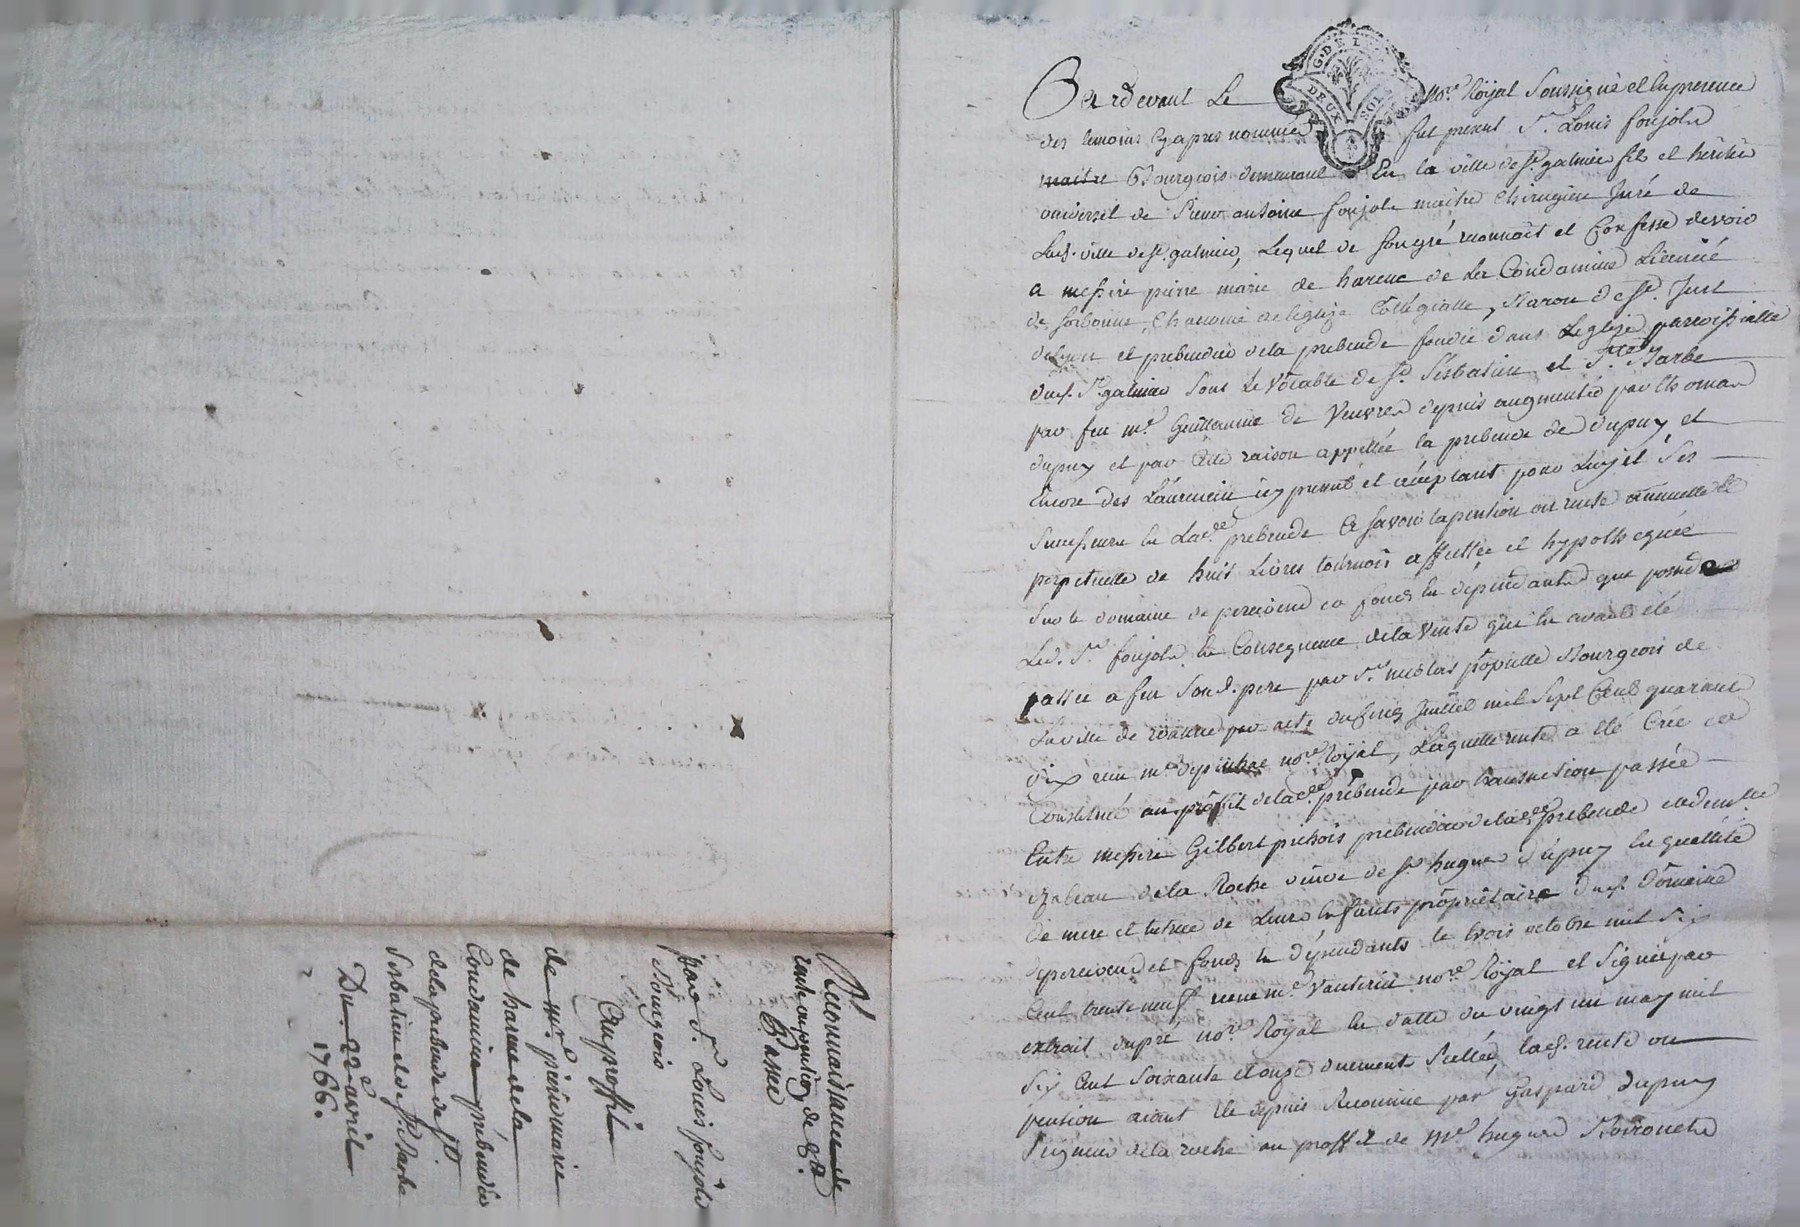 G. DE L
DEUX SOLS
Par devant Le no.re Royal soussigné et En presence
des temoins Cy apres nommés fut present S.r Louis foujols
maitre Bourgeois demeurant En la ville de S.t galmier fils et heritier
universel de Pierre antoine foujols maitre Chirugien Juré de
Lad. ville de S.t galmier, Lequel de son gré reconnoit et Confesse devoir
a messire pierre marie de harenc de La Condamine Licencié
de Sorbonne, Chanoine de leglise Collégialle, Baron de S.t Just
de Lyon et prebendier de la prebende fondée dans Leglise parroissialle
dud. S.t galmier sous Le Vocable de S.t Sebastien et S.te Barbe
par feu m.e Guillaume de Veuvre depuis augmentée par thomas
dupuy et par Cette raison appellée la prebende de dupuy et
Encore des Laurencin icy present et acceptant pour Luy et ses
successeurs En Lad.e prebende Et Savoir la pention ou rente annuelle et
perpetuelle de huit Livres tournois affectée et hypothequée
sur le domaine de et fonds En dépendants que possede
Led. S.r foujols En Consequence de la Vente qui En avait été
passée a feu Son d. pere par S.r nicolas populle Bourgeois de
La ville de roanne par acte du cinq Juillet mil sept Cent quarante
dix reçu m.e no.re Royal, Laquelle rente a été Créée et
Constitué au profit de lad.e prébende par transaction passée
Entre messire Gilbert pichois prebendier de lad.e prebende et dem.lle
de la Roche veuve de S.r hugues dupuy En quallité
de mere et tutrice de Leurs Enfants propriétaire dud. Domaine
et fonds En dépendants le trois octobre mil six
Cent trente neuf reçue m.e Vauterin no.re Royal et Signée par
extrait dupré no.re Royal En datte du vingt un may mil
six Cent soixante et onze duement scellée, lad. rente ou
pention aiant été depuis Reconnue par Gaspard dupuy
Seigneur de la roche au proffit de M.e hugues
Reconnoissance de
rente ou pention de 8ᵗᵗ
Passée
par S.r Louis foujols
Bourgeois
Au proffit
de m.re pierre marie
de harenc de la
Condamine prébendier
de la prebende de S.t
Sebastien et de S.te Barbe
Du 22.e avril
1766.